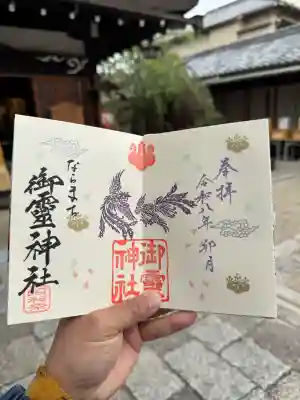 奉拝
令和八年卯月
御霊神社
ならまち
御靈神社